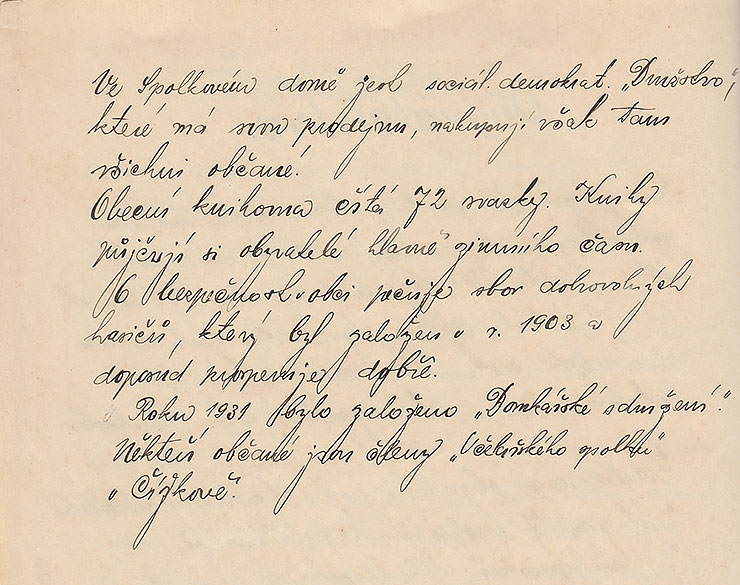 Ve Spolkovém domě jest sociál. demokrat. „Družstvo“,
které má svou prodejnu, nakupují však tam
všichni občané.
Obecní knihovna čítá 72 svazky. Knihy
půjčují si obyvatelé hlavně zimního času.
O bezpečnost v obci pečuje sbor dobrovolných
hasičů, který byl založen v r. 1903 a
doposud prosperuje dobře.
Roku 1931 bylo založeno „Domkářské sdružení“.
Někteří občané jsou členy „Včelařského spolku“
v Čížkově.